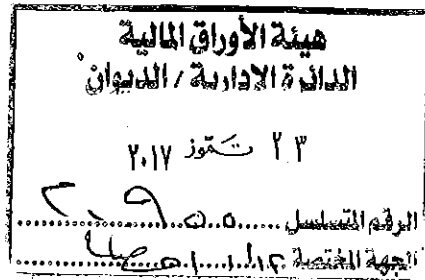 هيئة الأوراق المالية
الدائرة الادارية / الديوان
٢٣ تـمـوز ٢٠١٧
الرقم المتسلسل
الجهة المختصة